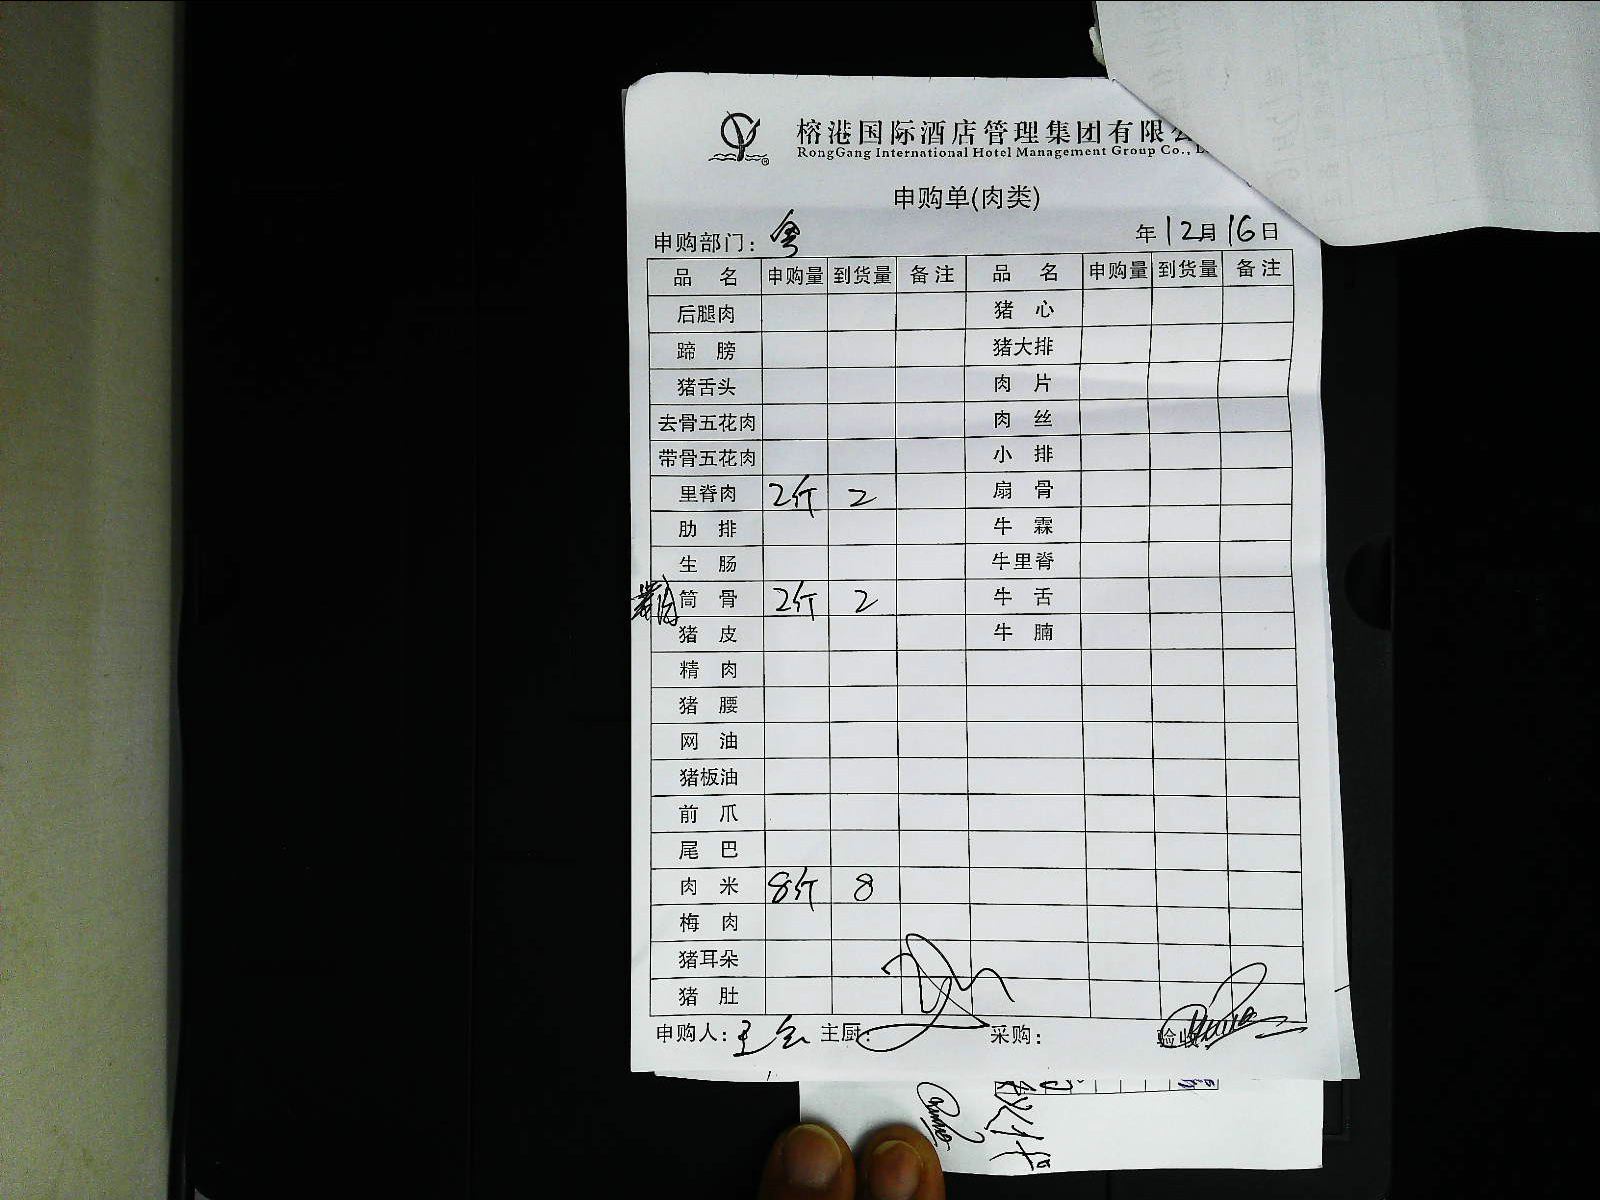 榕港国际酒店管理集团有限公
RongGang International Hotel Management Group Co., L
申购单(肉类)
申购部门：粤 年12月16日
品名 申购量 到货量 备注 品名 申购量 到货量 备注
后腿肉 猪心
蹄膀 猪大排
猪舌头 肉片
去骨五花肉 肉丝
带骨五花肉 小排
里脊肉 2斤 2 扇骨
肋排 牛霖
生肠 牛里脊
筒骨 2斤 2 牛舌
猪皮 牛腩
精肉
猪腰
网油
猪板油
前爪
尾巴
肉米 8斤 8
梅肉
猪耳朵
猪肚
申购人：王 主厨： 采购： 验收